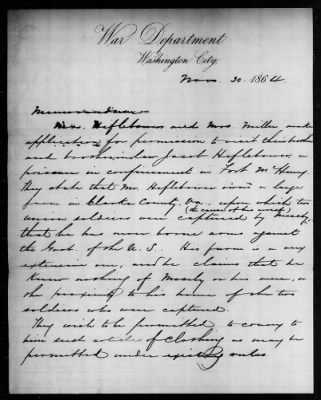 War Department
Washington City,
Nov. 30. 1864
Memorandum
Mrs. Heflebower and Mrs. Miller make
application for permission to visit their brother
and brother in law Jacob Heflebower, a
prisoner in confinement at Fort McHenry
They state that Mr. Heflebower owns a large
farm in Clarke County Va. upon which two
union soldiers were captured by Mosby,
that he has never borne arms against
the Govt. of the U.S. His farm is a very
extensive one, and he claims that he
knew nothing of Mosby or his men, or
the proximity to his house of the two
soldiers who were captured.
They wish to be permitted to convey to
him such articles of clothing as may be
permitted under existing rules